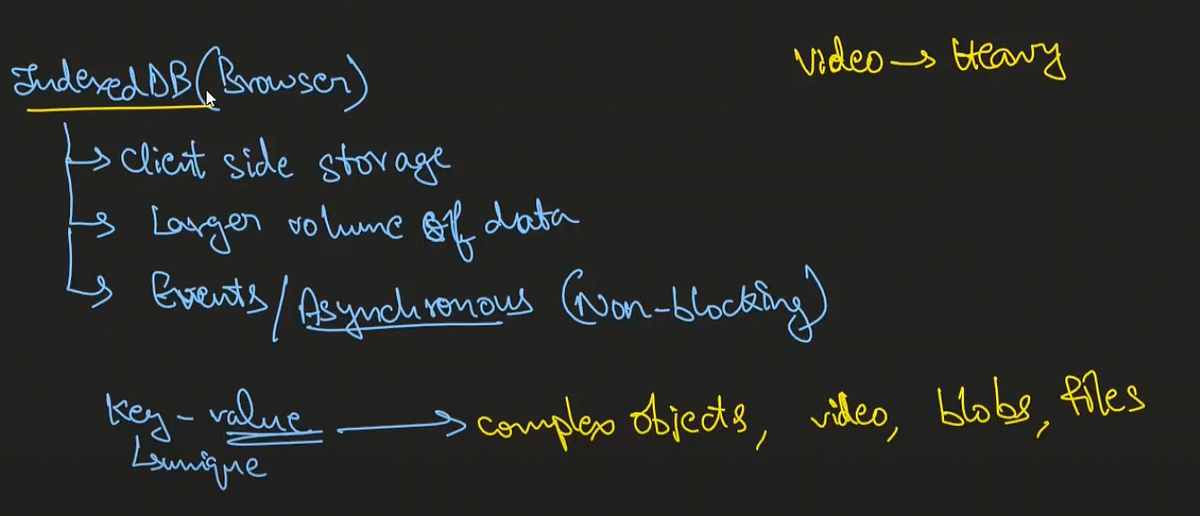 IndexedDB (Browser)
video → Heavy
→ client side storage
→ Larger volume of data
→ Events / Asynchronous (Non-blocking)
key - value → complex objects, video, blobs, files
↳ unique